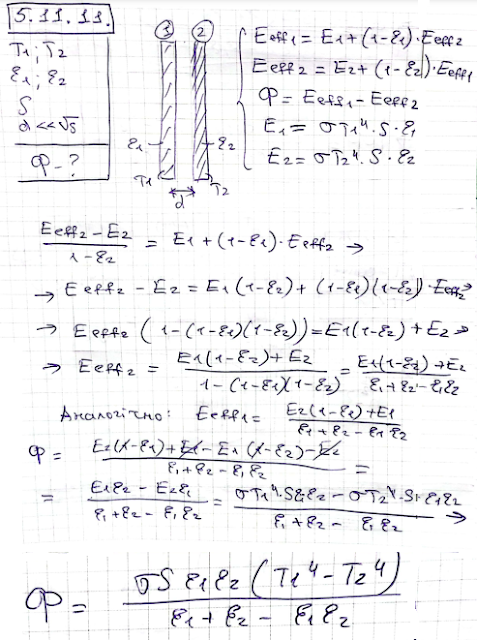 5.11.11.
T1; T2
ε1; ε2
S
d << √S
Φ - ?
1 2
ε1 ε2
T1 T2
d
Eeff1 = E1 + (1-ε1)·Eeff2
Eeff2 = E2 + (1-ε2)·Eeff1
Φ = Eeff1 - Eeff2
E1 = σT1⁴·S·ε1
E2 = σT2⁴·S·ε2
(Eeff2 - E2)/(1-ε2) = E1 + (1-ε1)·Eeff2 →
→ Eeff2 - E2 = E1(1-ε2) + (1-ε1)(1-ε2)·Eeff2 →
→ Eeff2 (1-(1-ε1)(1-ε2)) = E1(1-ε2) + E2 →
→ Eeff2 = (E1(1-ε2)+E2)/(1-(1-ε1)(1-ε2)) = (E1(1-ε2)+E2)/(ε1+ε2-ε1ε2)
Аналогічно: Eeff1 = (E2(1-ε1)+E1)/(ε1+ε2-ε1ε2)
Φ = (E2(1-ε1)+E1-E1(1-ε2)-E2)/(ε1+ε2-ε1ε2) =
= (E1ε2 - E2ε1)/(ε1+ε2-ε1ε2) = (σT1⁴·Sε1ε2 - σT2⁴·S·ε1ε2)/(ε1+ε2-ε1ε2) →
Φ = (σS ε1ε2 (T1⁴ - T2⁴))/(ε1+ε2-ε1ε2)